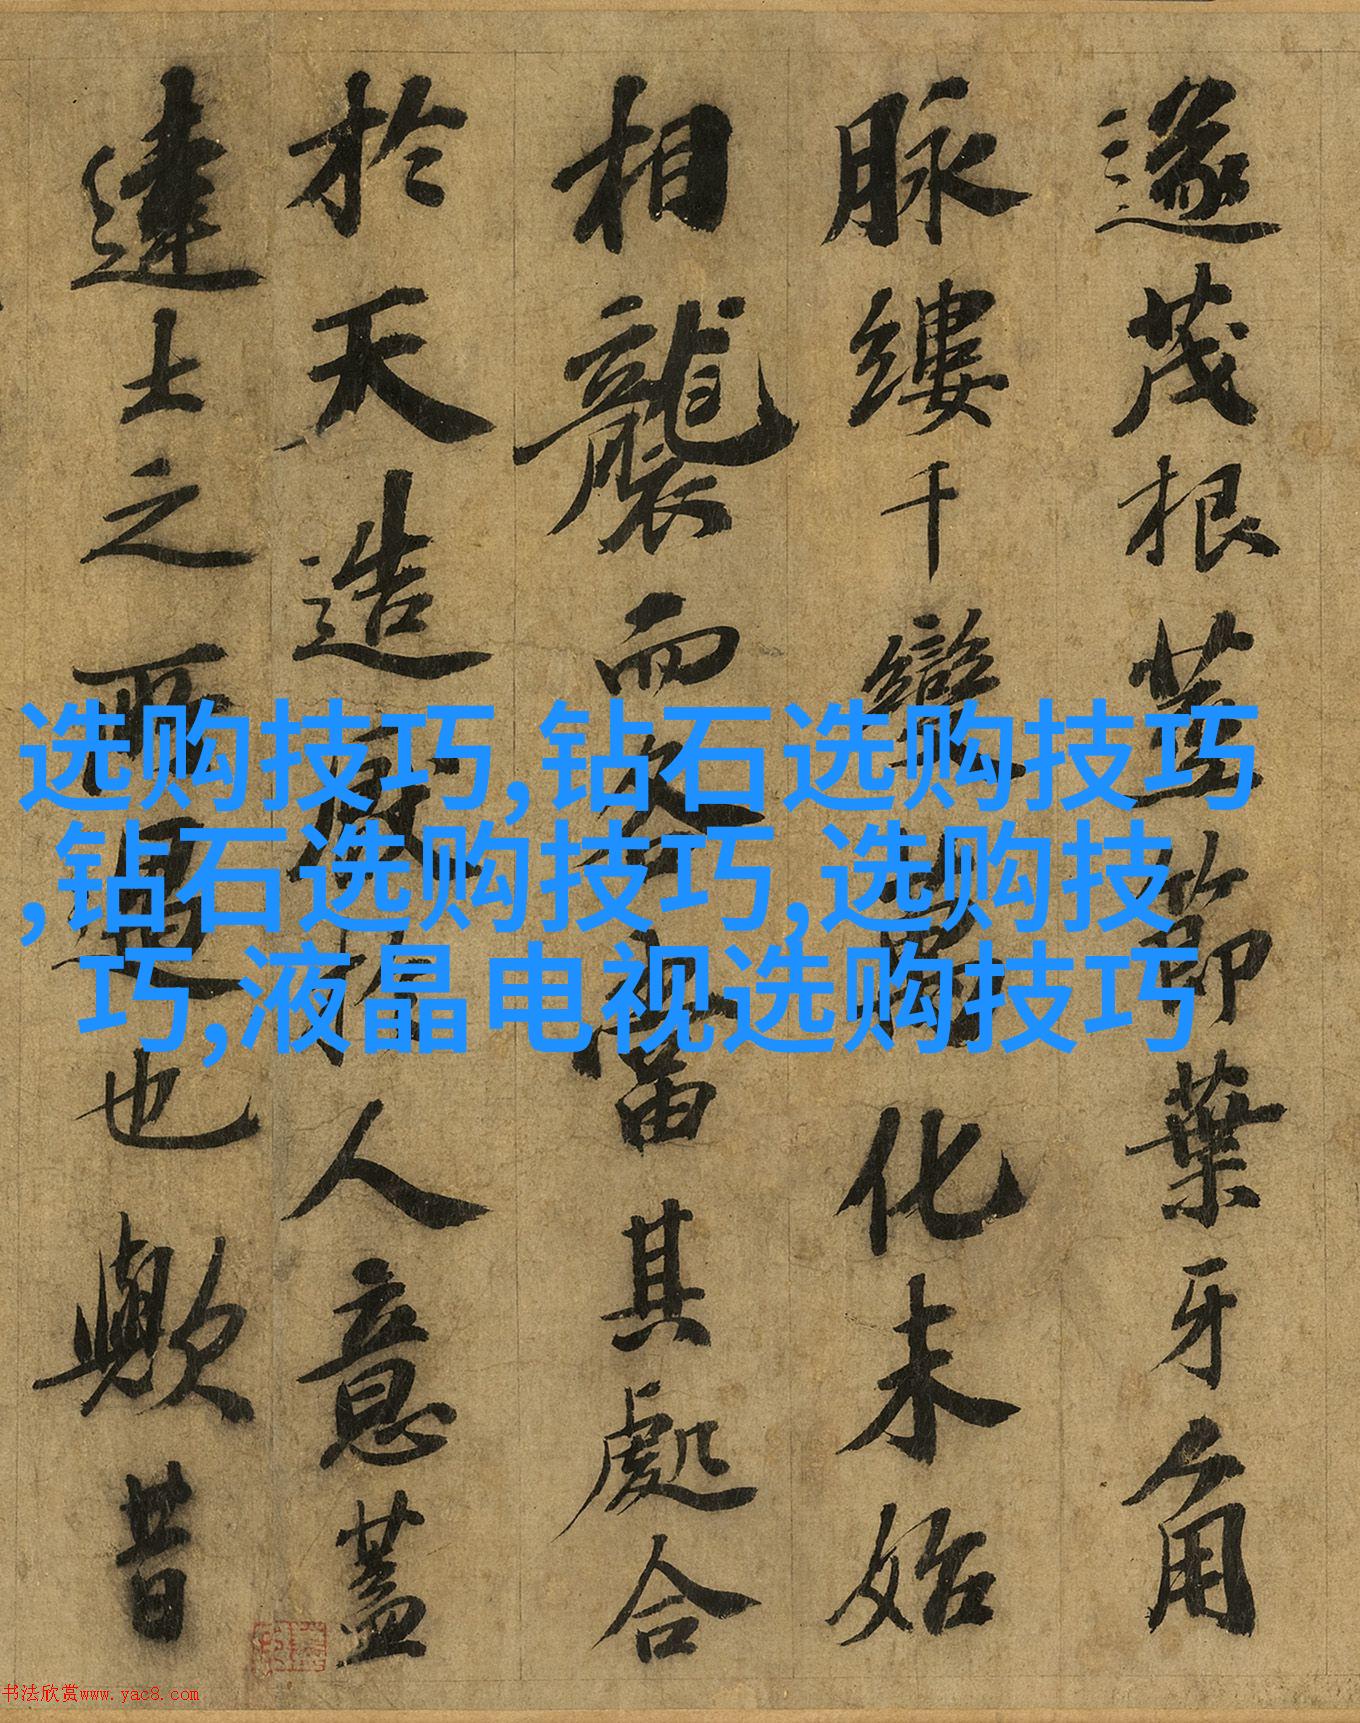 遂茂根莖節葉牙角
脉縷千變萬化未始
相襲而各當其處合
於天造厭於人意蓋
達士之所寓也歟昔
选购技巧,钻石选购技巧
,钻石选购技巧,选购技
巧,液晶电视选购技巧
书法欣赏www.yac8.com